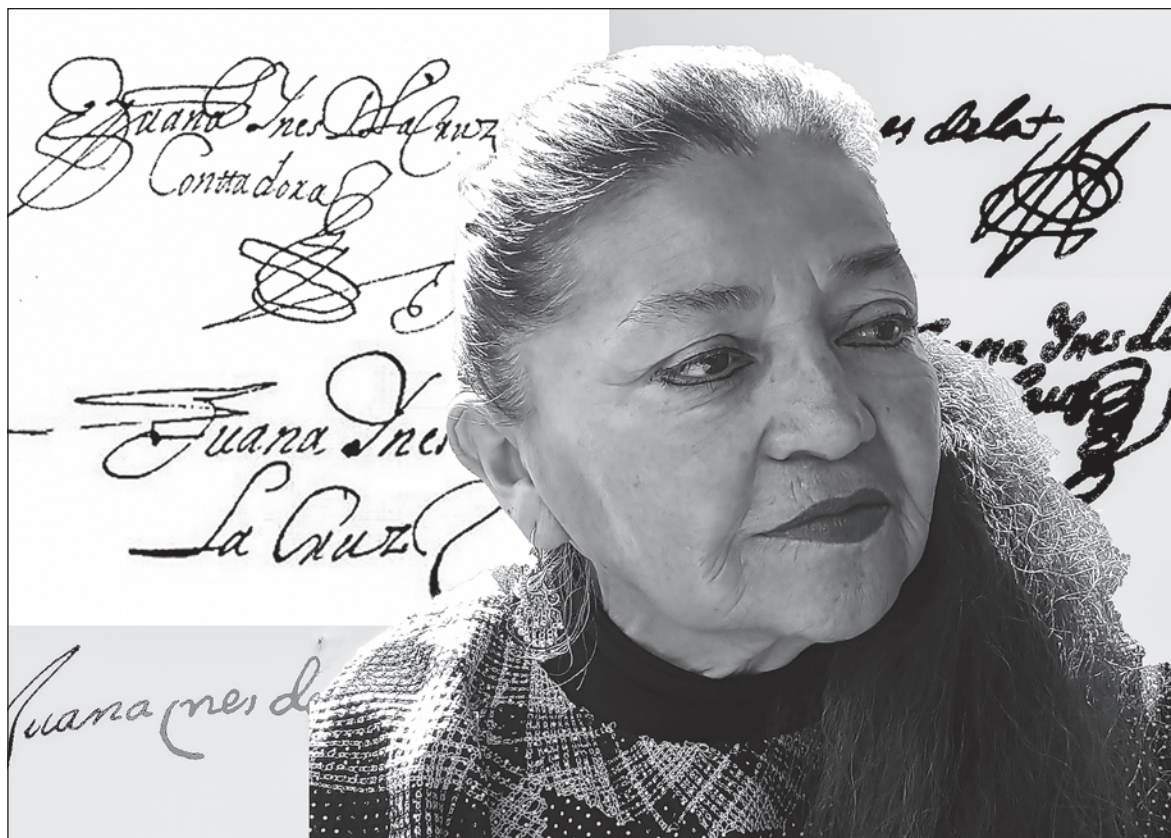 Juana Ynes De la Cruz
Conttadora
Juana Ynes
La Cruz
Juana ynes de
es dela +
ana Ynes de
Cruz